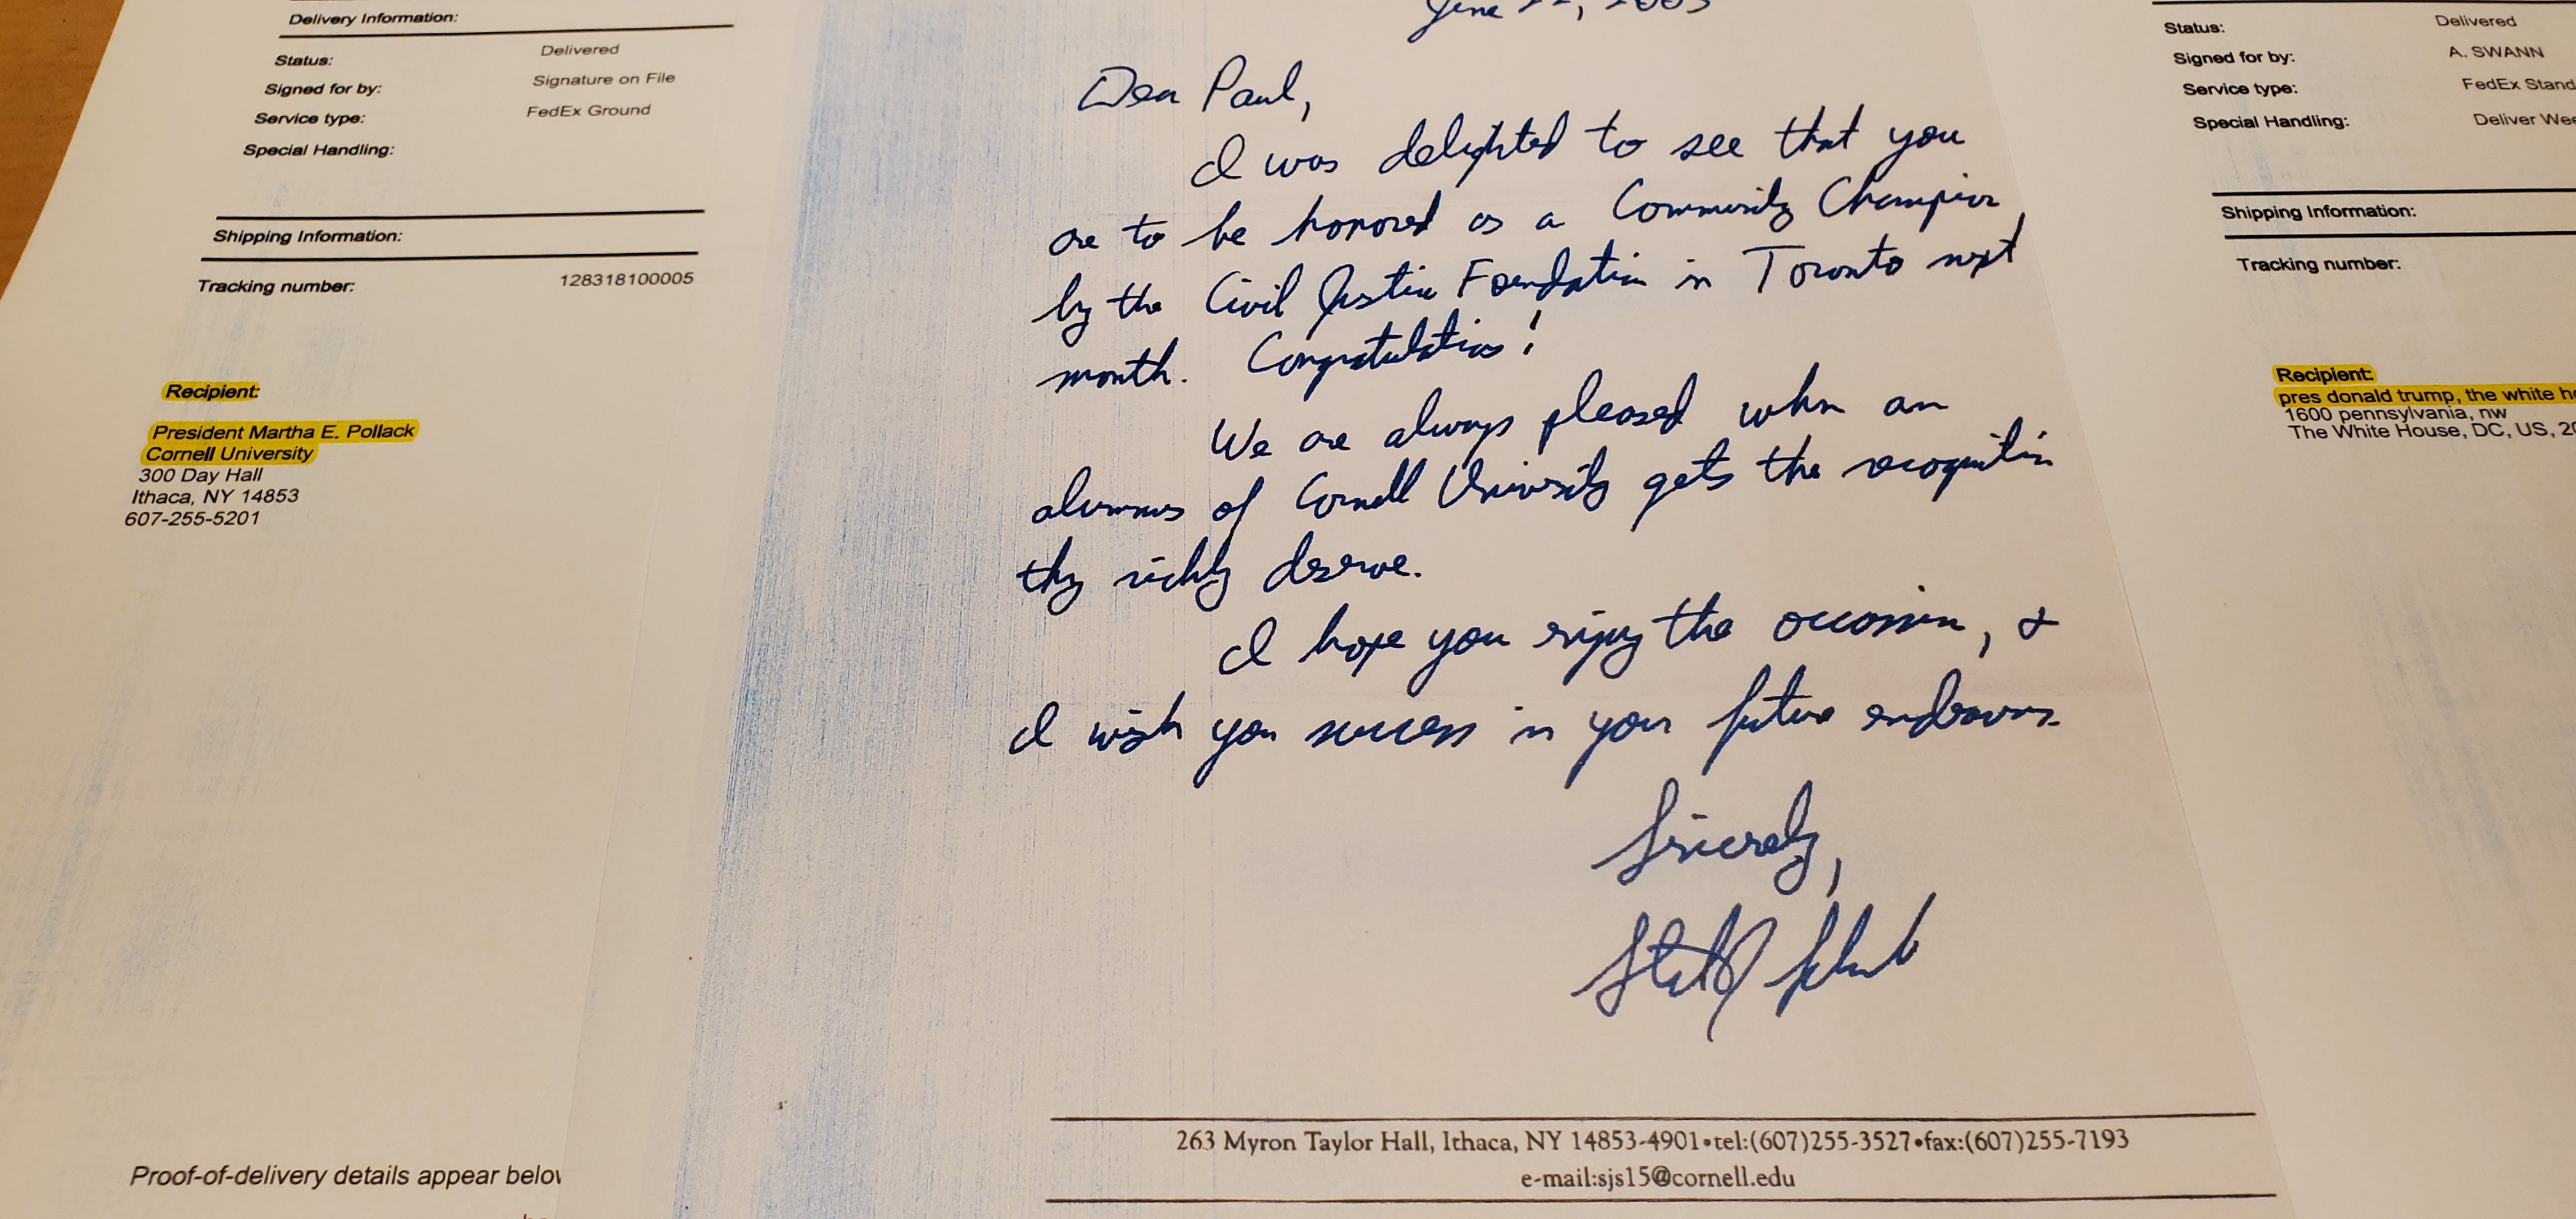 Delivery Information:
Status: Delivered
Signed for by: Signature on File
Service type: FedEx Ground
Special Handling:
Shipping Information:
Tracking number: 128318100005
Recipient:
President Martha E. Pollack
Cornell University
300 Day Hall
Ithaca, NY 14853
607-255-5201
Proof-of-delivery details appear below
June 2003
Dear Paul,
I was delighted to see that you
are to be honored as a Community Champion
by the Civil Justice Foundation in Toronto next
month. Congratulations!
We are always pleased when an
alumnus of Cornell University gets the recognition
they richly deserve.
I hope you enjoy the occasion, &
I wish you success in your future endeavors.
Sincerely,
263 Myron Taylor Hall, Ithaca, NY 14853-4901•tel:(607)255-3527•fax:(607)255-7193
e-mail:sjs15@cornell.edu
Status: Delivered
Signed for by: A. SWANN
Service type: FedEx Stand
Special Handling: Deliver Wee
Shipping Information:
Tracking number:
Recipient:
pres donald trump, the white ho
1600 pennsylvania, nw
The White House, DC, US, 20